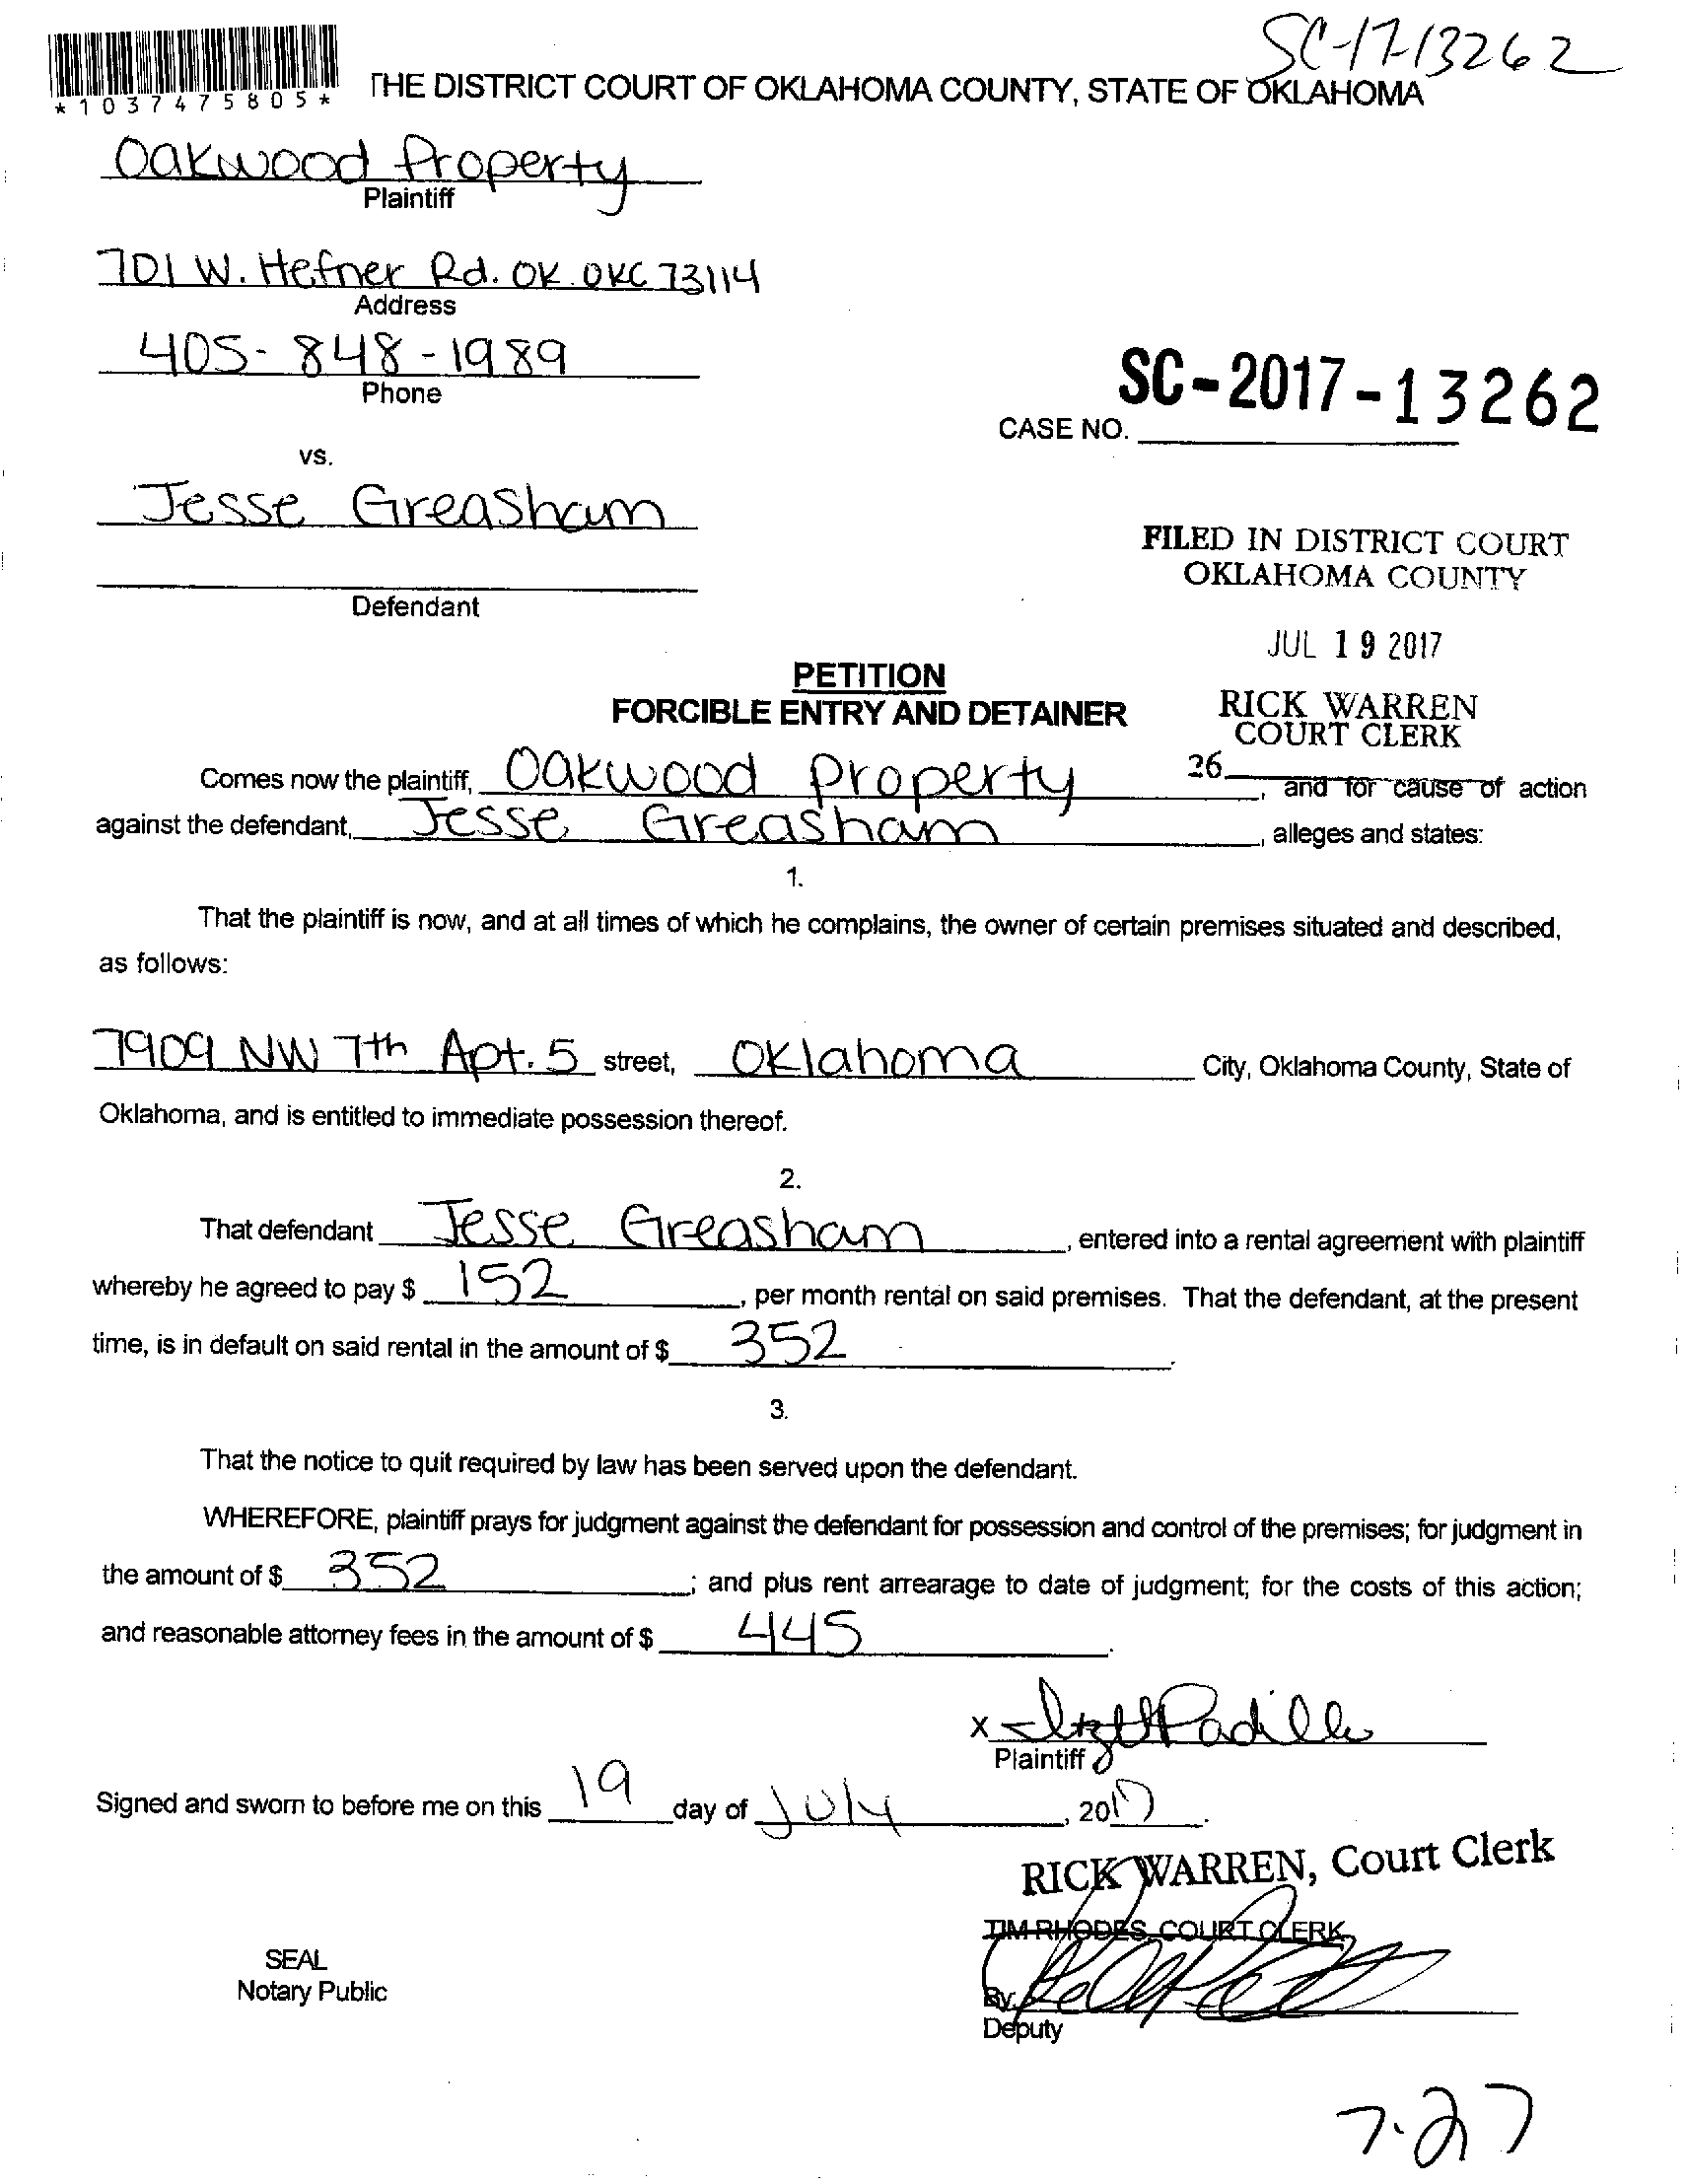 SC-17-13262
*1037475805*
THE DISTRICT COURT OF OKLAHOMA COUNTY, STATE OF OKLAHOMA
Oakwood Property
Plaintiff
701 W. Hefner Rd. OK. OKC 73114
Address
405-848-1989
Phone
SC-2017-13262
CASE NO.
vs.
Jesse Greasham
Defendant
FILED IN DISTRICT COURT
OKLAHOMA COUNTY
JUL 19 2017
RICK WARREN
COURT CLERK
26
PETITION
FORCIBLE ENTRY AND DETAINER
Comes now the plaintiff, Oakwood Property, and for cause of action
against the defendant, Jesse Greasham, alleges and states:
1.
That the plaintiff is now, and at all times of which he complains, the owner of certain premises situated and described,
as follows:
7909 NW 7th Apt. 5 street, Oklahoma City, Oklahoma County, State of
Oklahoma, and is entitled to immediate possession thereof.
2.
That defendant Jesse Greasham, entered into a rental agreement with plaintiff
whereby he agreed to pay $ 152, per month rental on said premises. That the defendant, at the present
time, is in default on said rental in the amount of $ 352.
3.
That the notice to quit required by law has been served upon the defendant.
WHEREFORE, plaintiff prays for judgment against the defendant for possession and control of the premises; for judgment in
the amount of $ 352; and plus rent arrearage to date of judgment; for the costs of this action;
and reasonable attorney fees in the amount of $ 445.
x Padilla
Plaintiff
Signed and sworn to before me on this 19 day of July, 2017.
RICK WARREN, Court Clerk
TIM RHODES, COURT CLERK
SEAL
Notary Public
By
Deputy
7-27